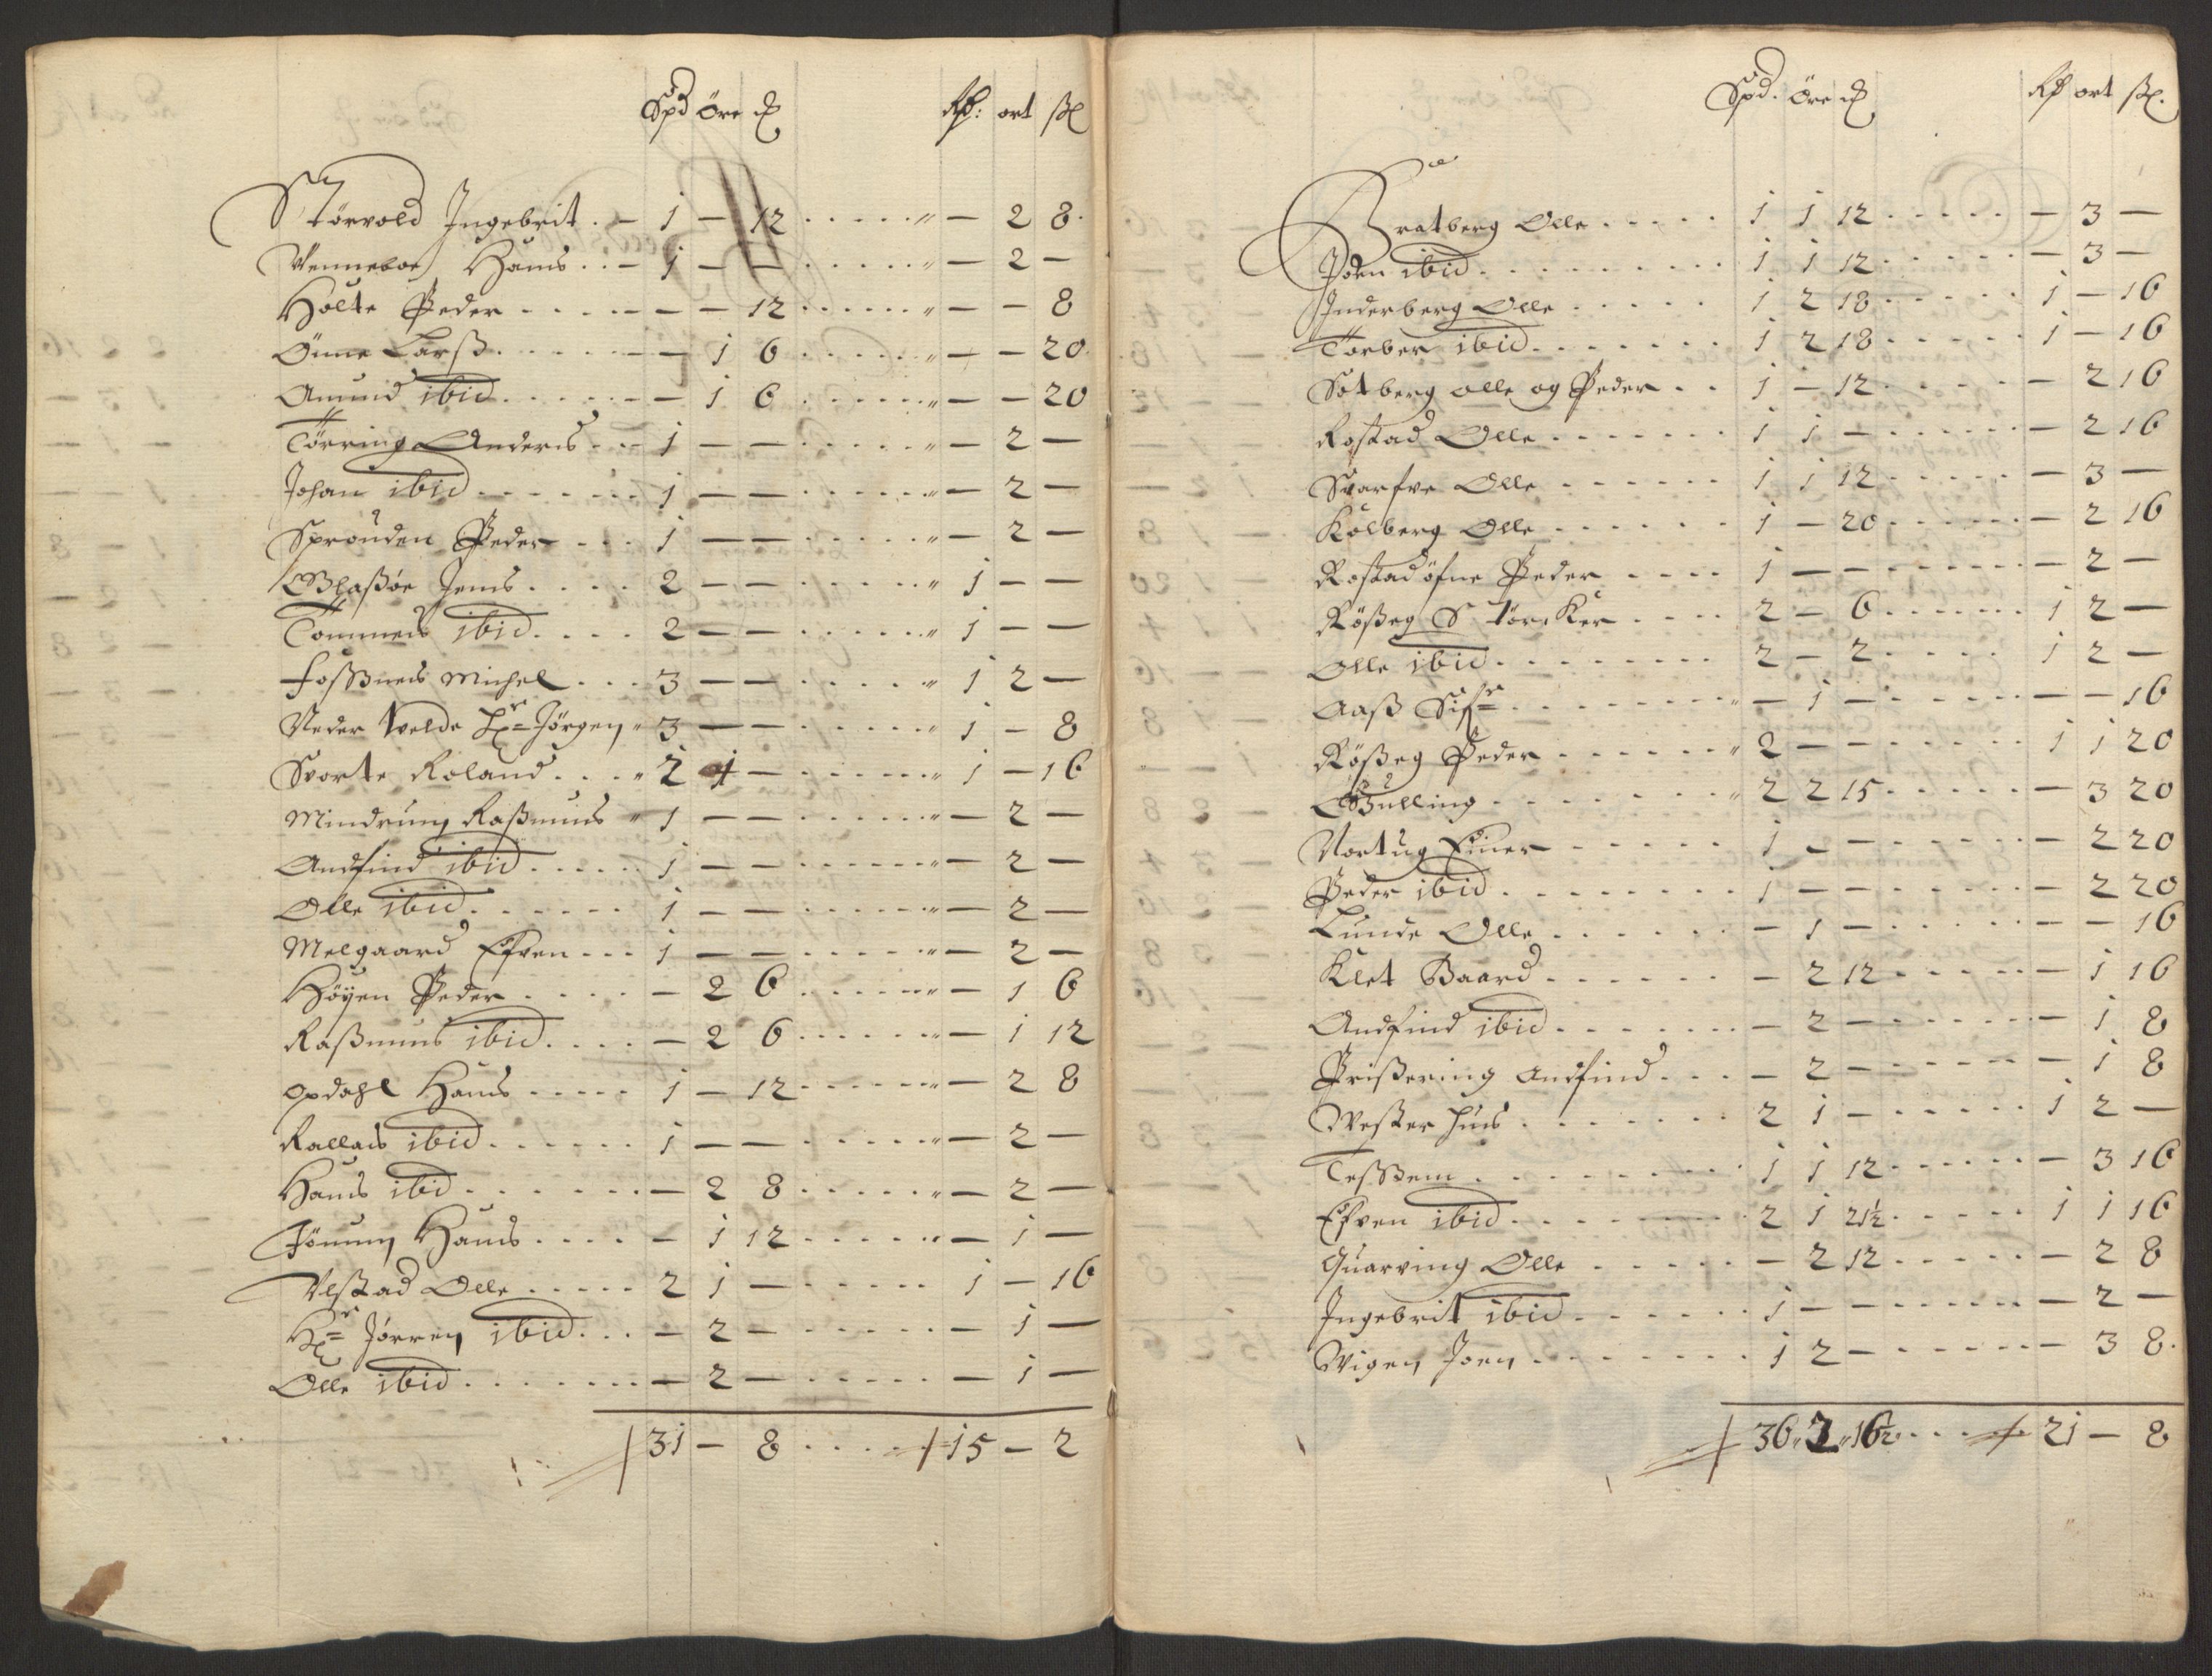 Spd Öre ₰ Rd: ort ß
Störvold Ingebrit . – 1 – 12 . . . . . „ – 2 8.
Venneboe Hans . . – 1 – – . . . . . „ – 2 –
Holte Peder . . . . – – 12 . . . . . „ – – 8
Önne Larß . . . . . – 1 6 . . . . . „ – – 20.
Amund ibid . . . . . – 1 6 . . . . . „ – – 20
Törring Anders . . . 1 – – . . . . . „ – 2 –
Johan ibid . . . . . 1 – – . . . . . „ – 2 –
Sprouden Peder . . . 1 – – . . . . . „ – 2 –
Glaßöe Jens . . . . 2 – – . . . . . „ 1 – –
Tommes ibid . . . . 2 – – . . . . . „ 1 – –
Foßnes Michel . . . 3 – – . . . . . „ 1 2 –
Neder Welde Hr= Jörgen „ 3 – – . . . . . „ 1 – 8
Svorte Roland . . . „ 2 1 – . . . . . „ 1 – 16
Mindrum Raßmus „ 1 – – . . . . . „ – 2 –
Andfind ibid . . . . . 1 – – . . . . . „ – 2 –
Olle ibid . . . . . . 1 – – . . . . . „ – 2 –
Melgaard Efven . . . 1 – – . . . . . „ – 2 –
Höyen Peder . . . . – 2 6 . . . . . „ – 1 6
Raßmus ibid . . . . – 2 6 . . . . . „ – 1 12
Opdahl Hans . . . . . 1 – 12 . . . . . „ – 2 8
Rallas ibid . . . . . . 1 – – . . . . . „ – 2 –
Hans ibid . . . . . . – 2 8 . . . . . „ – 2 –
Jönum Hans . . . . – 1 12 . . . . . „ – 1 –
Vlstad Olle . . . . . 2 1 – . . . . . 1 – 16
Hr= Jörren ibid . . . – 2 – . . . . . – 1 –
Olle ibid . . . . . . – 2 – . . . . . – 1 –
31 – 8 . . . . 15 – 2
Spd. Öre ₰ Rd ort ß.
Bratberg Olle . . . . . 1 1 12 . . . . . – 3 –
Joen ibid . . . . . . . . 1 1 12 . . . . . – 3 –
Inderberg Olle . . . . . 1 2 18 . . . . . 1 – 16
Torber ibid . . . . . . . 1 2 18 . . . . . 1 – 16
Sotberg Olle og Peder . . 1 – 12 . . . . . – 2 16
Rostad Olle . . . . . . . 1 1 – . . . . . – 2 16
Svarfve Olle . . . . . . 1 1 12 . . . . . – 3 –
Kolberg Olle . . . . . . 1 – 20 . . . . . – 2 16
Rostad öfne Peder . . . . 1 – – . . . . . – 2 –
Rößeg Störcker . . . . 2 – 6 . . . . . 1 2 –
Olle ibid . . . . . . . . 2 – 2 . . . . . 1 2 –
Aaß . . . . . . . „ – 1 – . . . . . – – 16
Rößeg Peder . . . . . . „ 2 – – . . . . . 1 1 20
Bulling . . . . . . . „ 2 2 15 . . . . . – 3 20
Nortug Einer . . . . . 1 – – . . . . . – 2 20
Peder ibid . . . . . . . . 1 – – . . . . . – 2 20
Lunde Olle . . . . . . – 1 – . . . . . – – 16
Klet Baard . . . . . . – 2 12 . . . . . – 1 16
Andfind ibid . . . . . . . – 2 – . . . . . – 1 8
Prißering Andfind . . . – 2 – . . . . . – 1 8
Wester huus . . . . . . . 2 1 – . . . . . 1 2 –
Teßem . . . . . . . . . 1 1 12 . . . . . – 3 16
Efven ibid . . . . . . . . 2 1 21½ . . . . . 1 1 16
Quarving Olle . . . . . – 2 12 . . . . – 2 8
Ingebrit ibid . . . . . . 1 – – . . . . . – 2 –
Wigen Joen . . . . . . . 1 2 – . . . . . – 3 8.
36 „ 2 „ 16½ . . . . 21 – 8